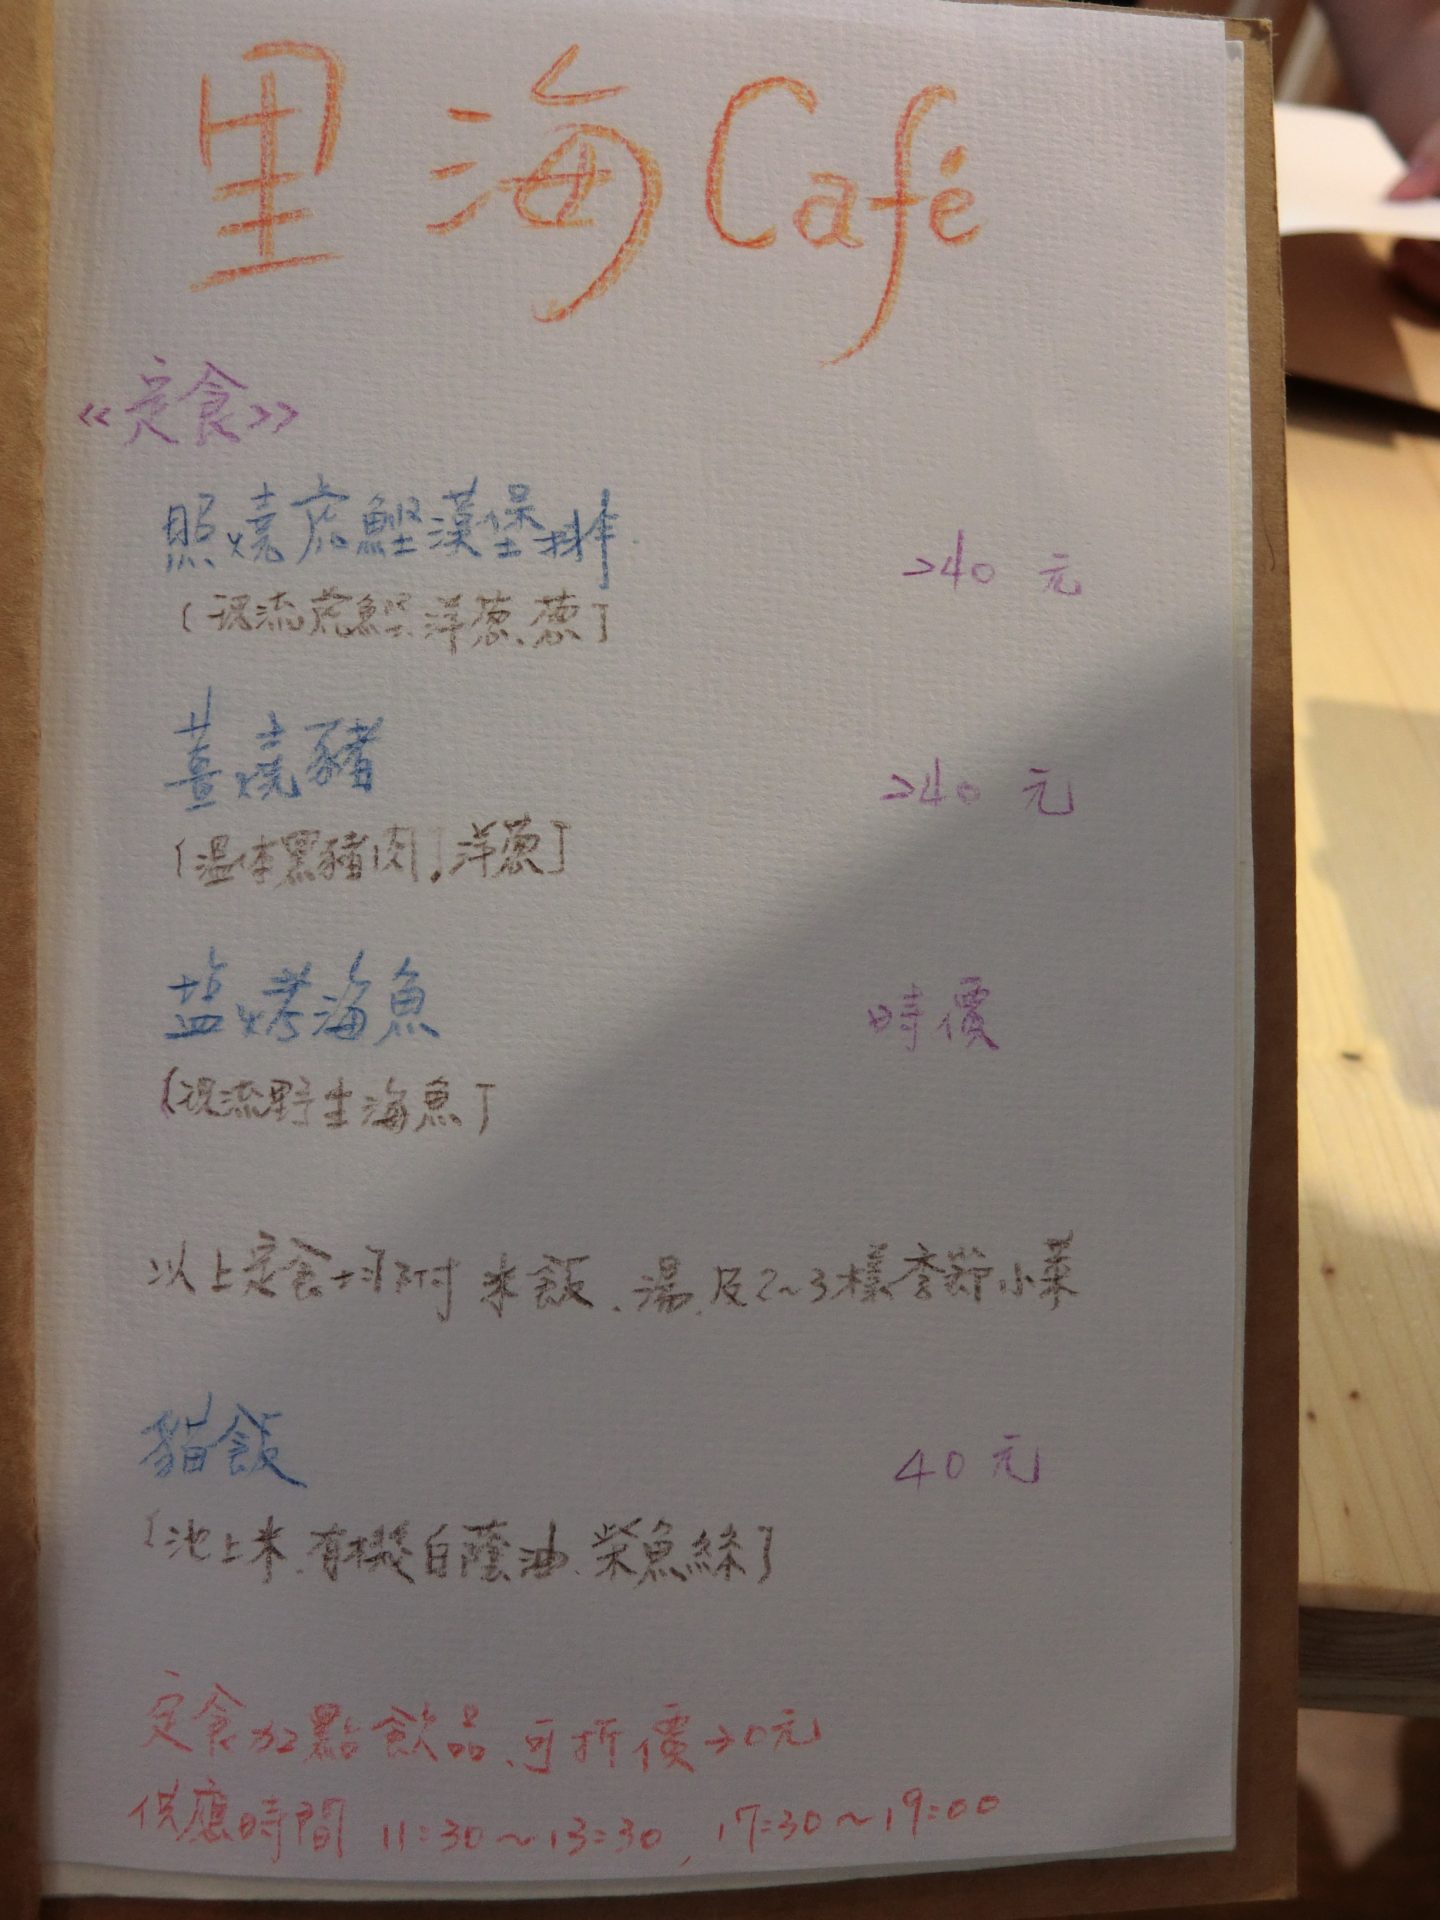 里海Café
《定食》
照燒虎鰹漢堡排 240元
〔現流虎鰹、洋蔥、蔥〕
薑燒豬 240元
〔温体黑豬肉、洋蔥〕
盐烤海魚 時價
〔現流野生海魚〕
以上定食均附米飯、湯、及2~3樣季節小菜
貓飯 40元
〔池上米、有機白蔭油、柴魚絲〕
定食加點飲品、可折價20元
供應時間 11:30~13:30, 17:30~19:00